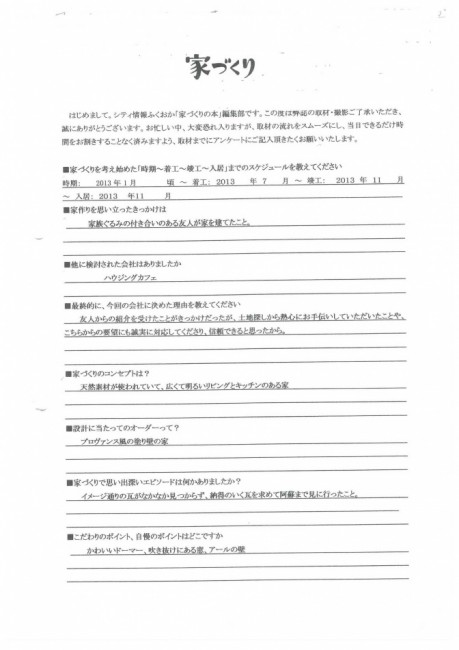 家づくり
はじめまして。シティ情報ふくおか「家づくりの本」編集部です。この度は弊誌の取材・撮影ご了承いただき、
誠にありがとうございます。お忙しい中、大変恐れ入りますが、取材の流れをスムーズにし、当日できるだけ時
間をお割きすることなく済みますよう、取材までにアンケートにご記入頂きたくお願いいたします。
■家づくりを考え始めた「時期～着工～竣工～入居」までのスケジュールを教えてください
時期： 2013 年 1 月 頃 ～ 着工： 2013 年 7 月 ～ 竣工： 2013 年 11 月
～ 入居： 2013 年11 月
■家作りを思い立ったきっかけは
家族ぐるみの付き合いのある友人が家を建てたこと。
■他に検討された会社はありましたか
ハウジングカフェ
■最終的に、今回の会社に決めた理由を教えてください
友人からの紹介を受けたことがきっかけだったが、土地探しから熱心にお手伝いしていただいたことや、
こちらからの要望にも誠実に対応してくださり、信頼できると思ったから。
■家づくりのコンセプトは？
天然素材が使われていて、広くて明るいリビングとキッチンのある家
■設計に当たってのオーダーって？
プロヴァンス風の塗り壁の家
■家づくりで思い出深いエピソードは何かありましたか？
イメージ通りの瓦がなかなか見つからず、納得のいく瓦を求めて阿蘇まで見に行ったこと。
■こだわりのポイント、自慢のポイントはどこですか
かわいいドーマー、吹き抜けにある窓、アールの壁